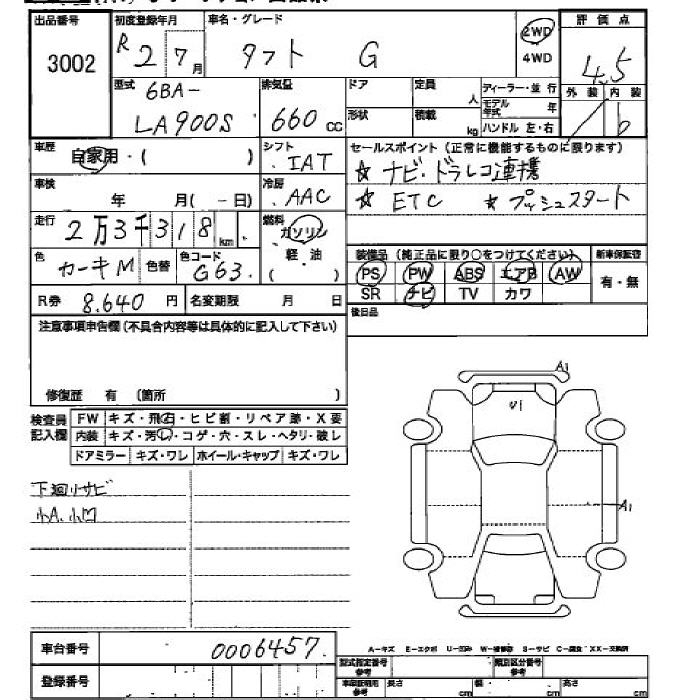 出品番号 初度登録年月 車名・グレード 評価点
3002 R2 7月 タフト G 2WD 4WD 4.5
型式 排気量 ドア 定員 人 ディーラー・並行 外装 内装
6BA-
LA900S 660cc 形状 積載 kg モデル年式 年 ハンドル 左・右 b
車歴 自家用・( ) シフト IAT セールスポイント(正常に機能するものに限ります)
☆ナビ・ドラレコ連携
車検 年 月( - 日) 冷房 AAC ☆ ETC ★プッシュスタート
走行 2万3千318km 燃料 ガソリン 軽油 ( )
色 カーキM 色替 色コード G63. 装備品(純正品に限り○をつけてください) 新車保証書
PS PW ABS エアB AW 有・無
SR ナビ TV カワ
R券 8.640円 名変期限 月 日 後日品
注意事項申告欄(不具合内容等は具体的に記入して下さい)
修復歴 有 (箇所 )
検査員記入欄 FW キズ・飛石・ヒビ割・リペア跡・X要
内装 キズ・汚レ・コゲ・穴・スレ・ヘタリ・破レ
ドアミラー キズ・ワレ ホイール・キャップ キズ・ワレ
A1
U1
A1
下廻リサビ
小A.小凹
車台番号 0006457.
登録番号
A-キズ E-エクボ U-凹み W-補修跡 S-サビ C-腐食 XX-交換済
型式指定番号 参考 類別区分番号 参考
車庫証明用 参考 長さ cm 幅 cm 高さ cm